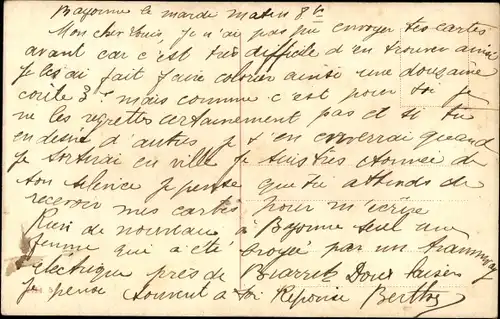 Bayonne le mardi matin 8h
Mon cher Louis Je n'ai pas pu envoyer tes cartes
avant car c'est très difficile d'en trouver ainsi
Je les ai fait faire colorier ainsi une douzaine
coûte 3f mais comme c'est pour toi je
ne les regrettes certainement pas et si tu
en desire d'autres je t'en enverrai quand
je sortirai en ville Je suis très etonnée de
ton silence je pense que tu attends de
recevoir mes cartes pour m'ecrire
Rien de nouveau à Bayonne seul une
femme qui a été broyée par un tramway
électrique près de Biarritz Doux baisers
je pense souvent à toi Réponse Berthe